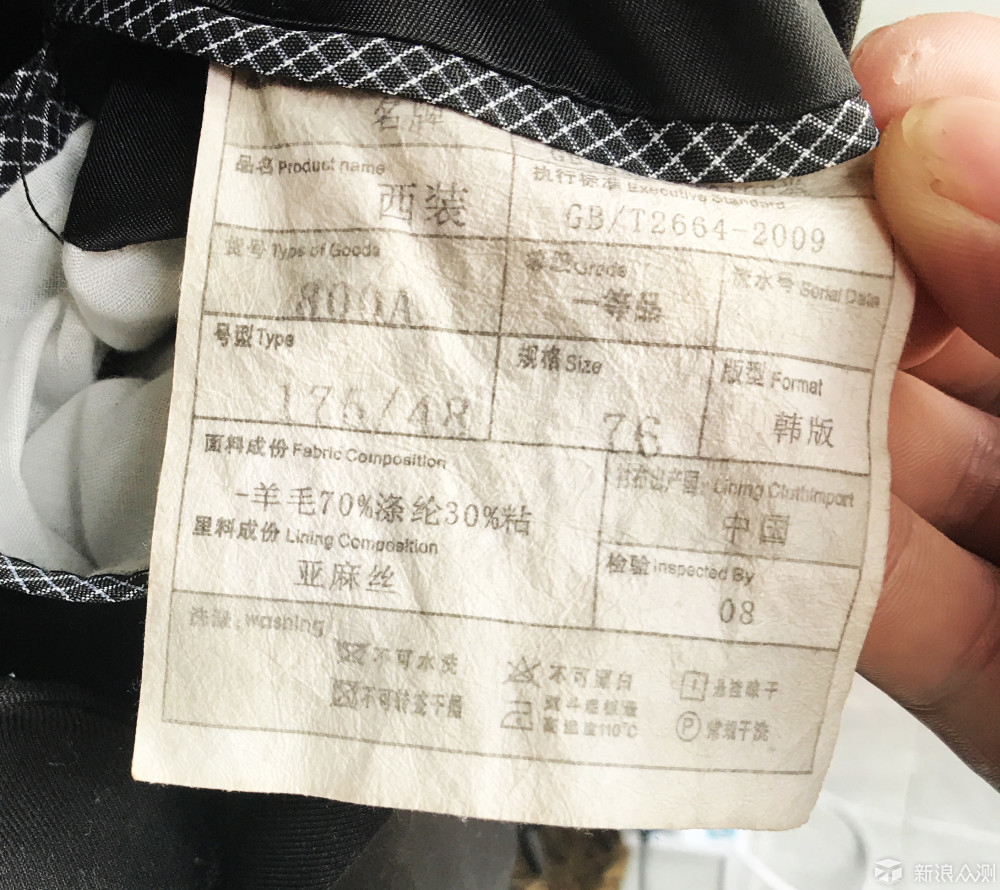 名牌
品名 Product name
西装
执行标准 Executive Standard
GB/T2664-2009
货号 Type of Goods
800A
等级 Grade
一等品
流水号 Serial Date
号型 Type
176/48
规格 Size
76
版型 Format
韩版
面料成份 Fabric Composition
-羊毛70%涤纶30%粘
Lining Clothimport
中国
里料成份 Lining Composition
亚麻丝
检验 Inspected By
08
洗涤: washing
不可水洗
不可转笼干燥
不可漂白
熨斗底板最
高温度110℃
悬挂晾干
P 常规干洗
新浪众测